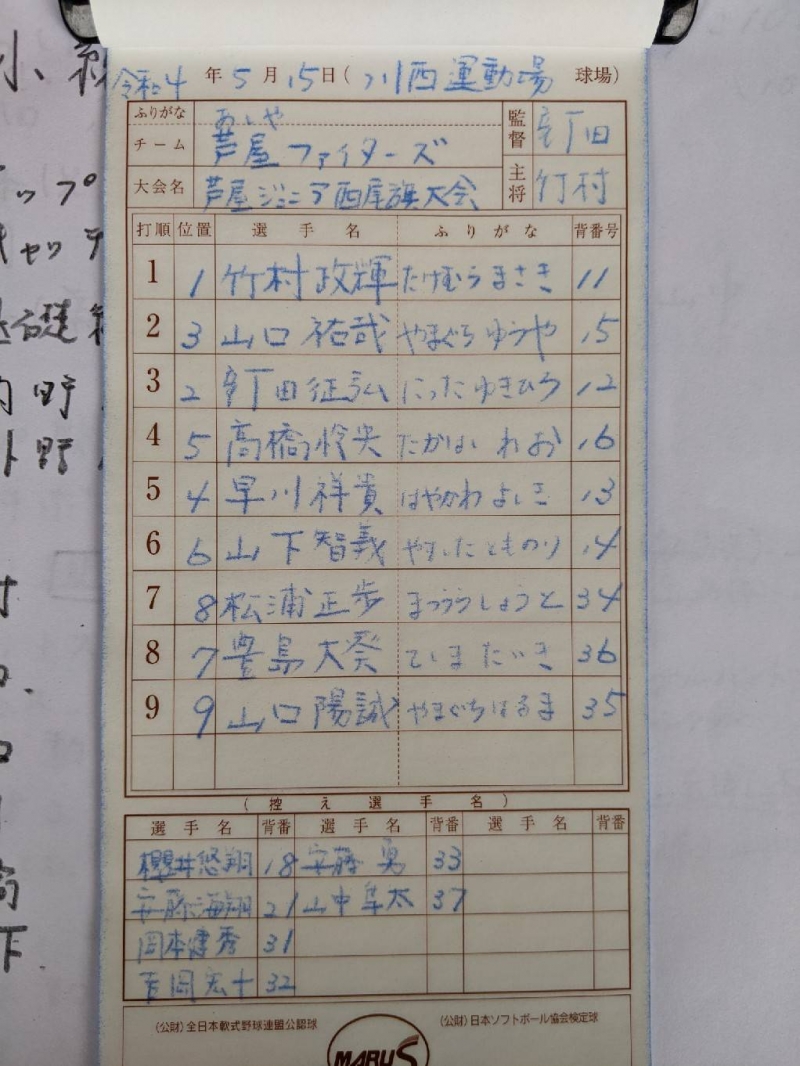 令和4年5月15日(川西運動場 球場)
ふりがな あしや
チーム 芦屋ファイターズ
監督 新田
大会名 芦屋ジュニア西尾旗大会
主将 竹村
打順 位置 選手名 ふりがな 背番号
1 1 竹村政輝 たけむらまさき 11
2 3 山口祐哉 やまぐちゆうや 15
3 2 新田征弘 にったゆきひろ 12
4 5 高橋怜央 たかはしれお 16
5 4 早川祥貴 はやかわよしき 13
6 6 山下智義 やましたとものり 14
7 8 松浦正歩 まつうらしょうと 34
8 7 豊島大葵 てしまだいき 36
9 9 山口陽誠 やまぐちはるま 35
(控え選手名)
選手名 背番 選手名 背番 選手名 背番
櫻井悠翔 18 安藤勇 33
安藤海翔 21 山中隼太 37
岡本健秀 31
吉岡宏十 32
(公財)全日本軟式野球連盟公認球 (公財)日本ソフトボール協会検定球
MARU S